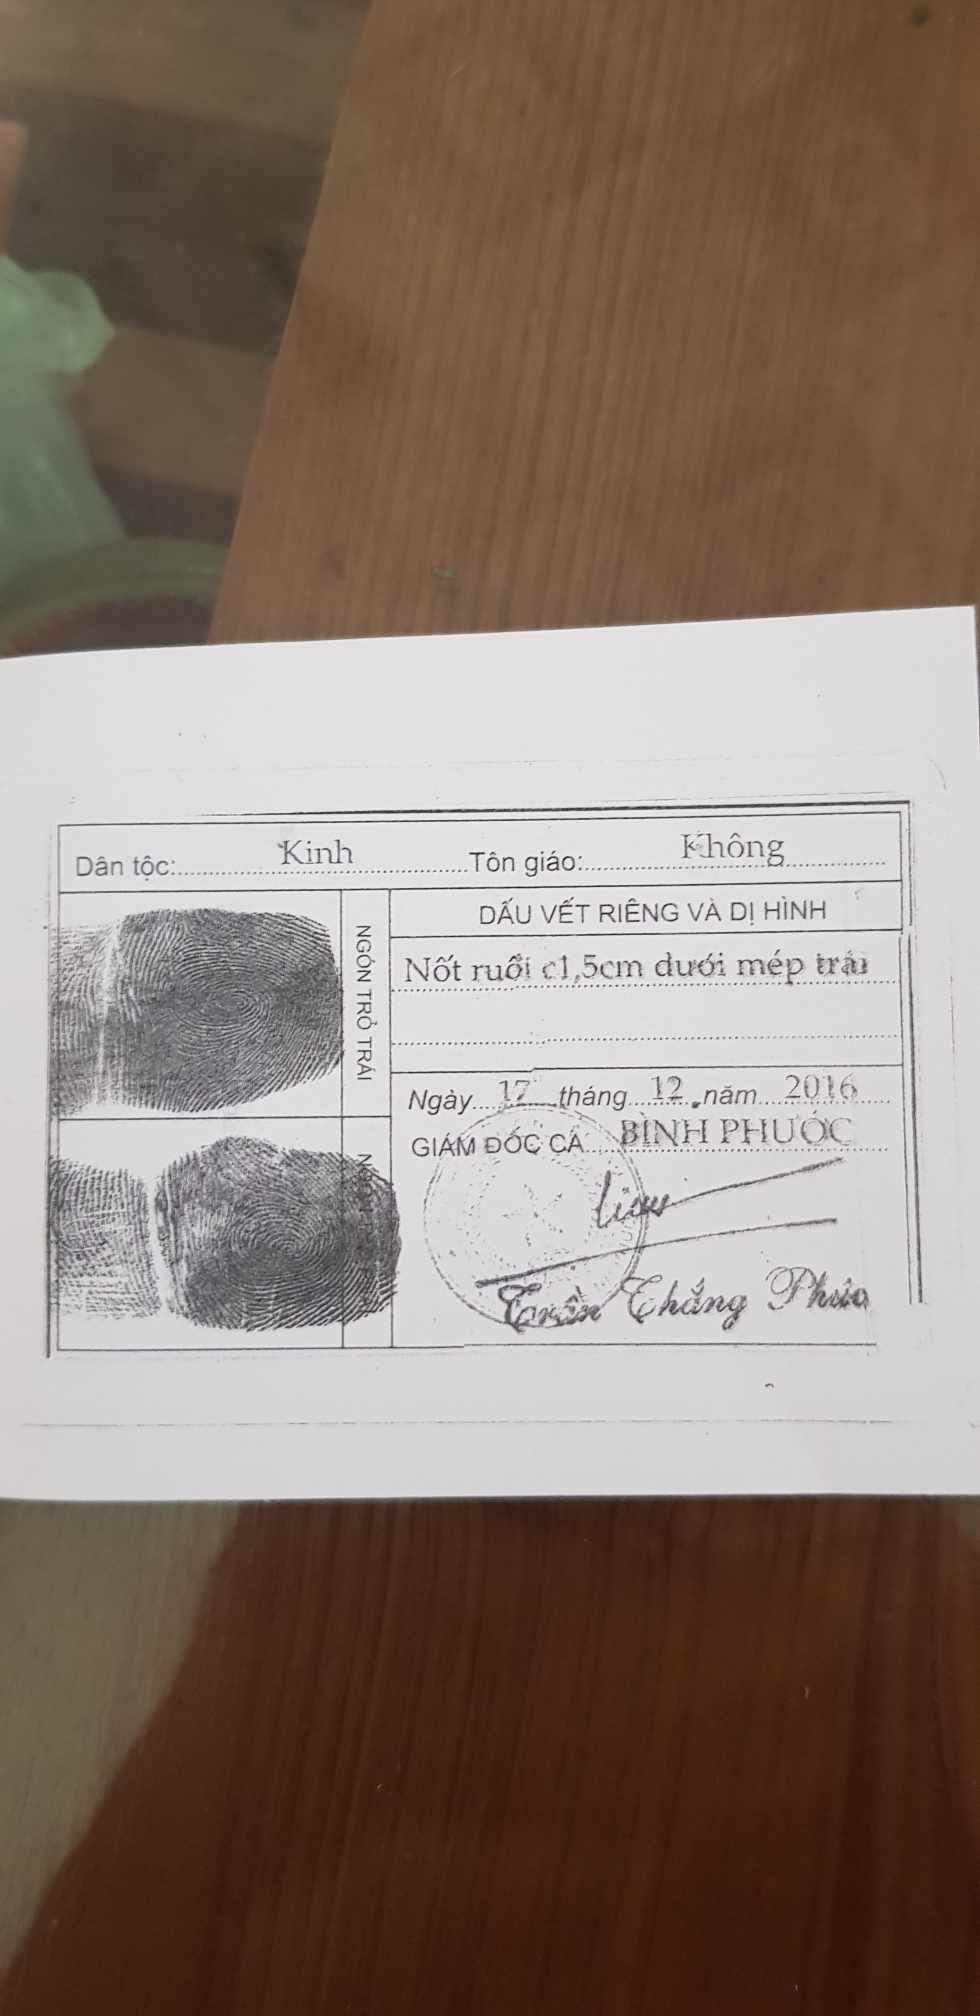 Dân tộc: Kinh Tôn giáo: Không
NGÓN TRỎ TRÁI
DẤU VẾT RIÊNG VÀ DỊ HÌNH
Nốt ruồi c1,5cm dưới mép trái
Ngày 17 tháng 12 năm 2016
GIÁM ĐỐC CA BÌNH PHƯỚC
Trần Thắng